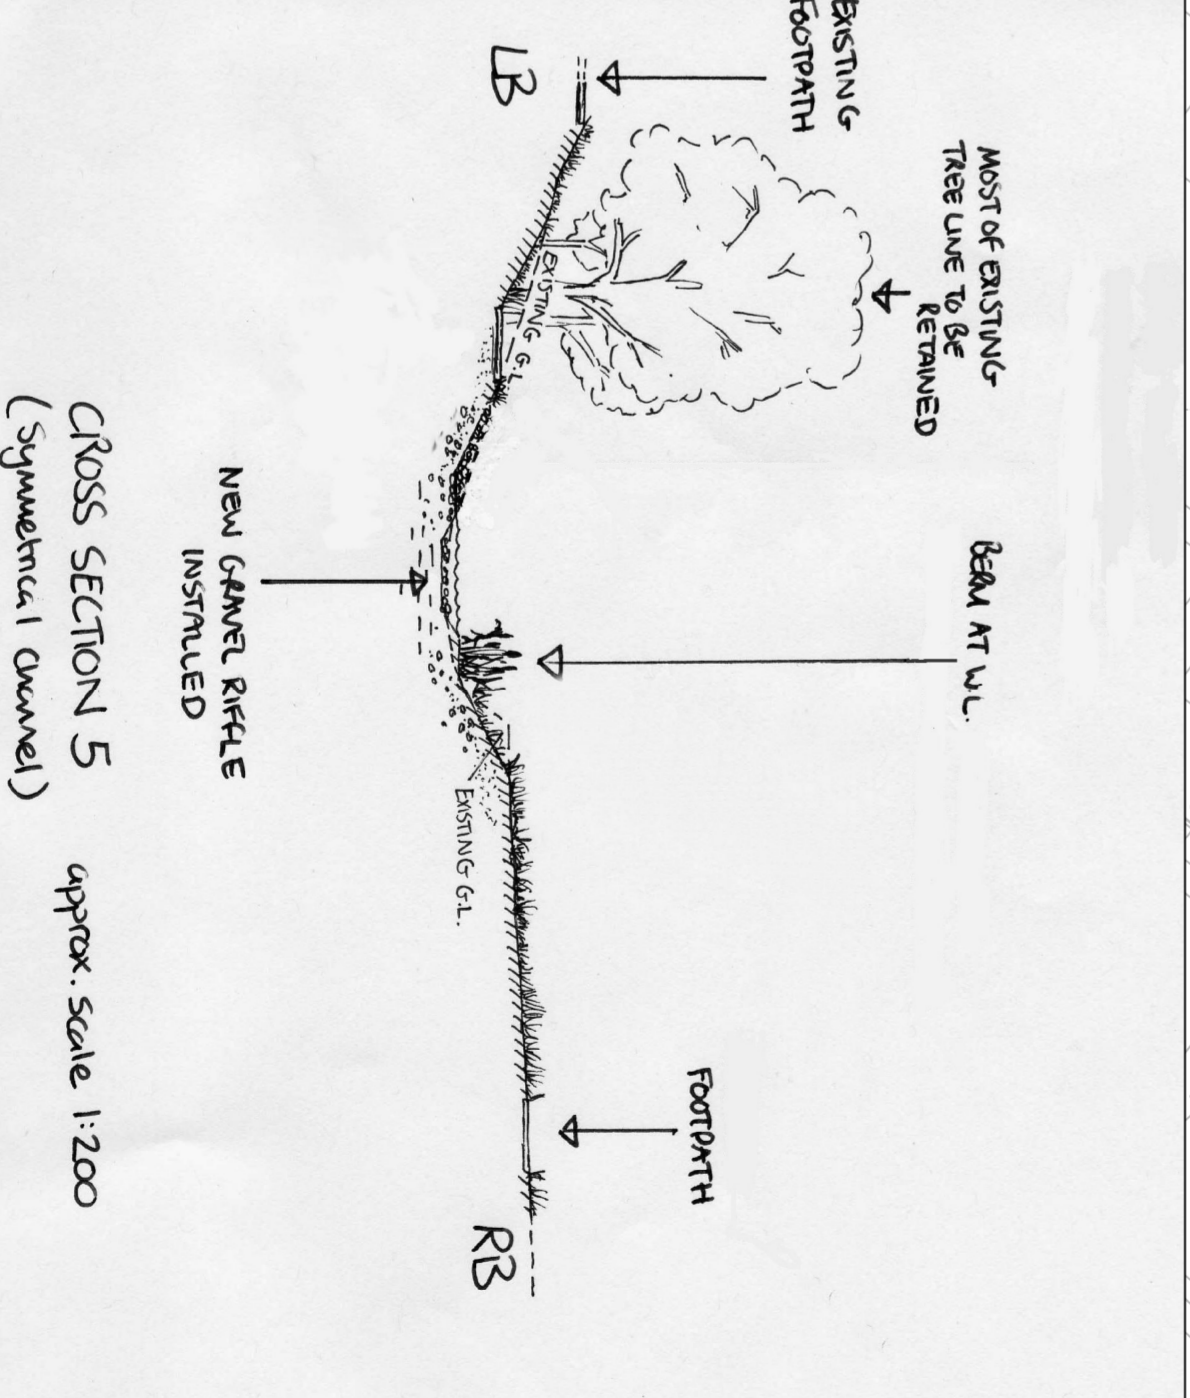 EXISTING
FOOTPATH
MOST OF EXISTING
TREE LINE TO BE
RETAINED
BERM AT W.L.
FOOTPATH
LB
EXISTING G.L.
EXISTING G.L.
RB
NEW GRAVEL RIFFLE
INSTALLED
CROSS SECTION 5 approx. scale 1:200
(Symmetrical channel)